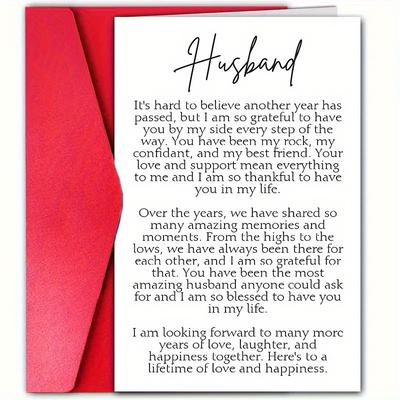 Husband
It's hard to believe another year has
passed, but I am so grateful to have
you by my side every step of the
way. You have been my rock, my
confidant, and my best friend. Your
love and support mean everything
to me and I am so thankful to have
you in my life.
Over the years, we have shared so
many amazing memories and
moments. From the highs to the
lows, we have always been there for
each other, and I am so grateful for
that. You have been the most
amazing husband anyone could ask
for and I am so blessed to have you
in my life.
I am looking forward to many more
years of love, laughter, and
happiness together. Here's to a
lifetime of love and happiness.